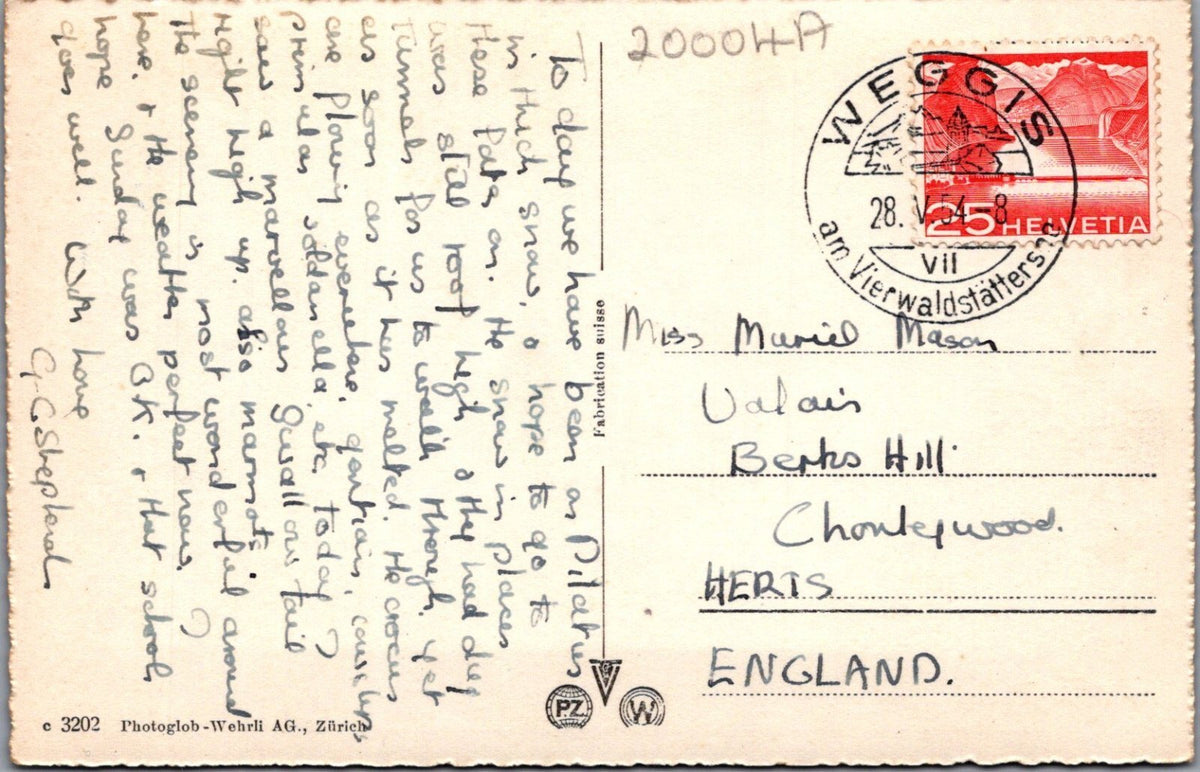 20004A
WEGGIS
28.V.54-8
VII
am Vierwaldstättersee
25 HELVETIA
To day we have been on Pilatus
in thick snow, & hope to go to
on. the snow in places
was still high & they had dug
tunnels for us to walk through. yet
as soon as it has melted. the crocus
are everywhere, gentians, cowslips
primulas soldanella, etc. today I
saw a marvellous swallow tail
right high up. also marmots
the scenery is most wonderful around
here. & the weather perfect now. I
hope Sunday was OK. & that school
goes well. With love
G.C. Shepherd
Fabrication suisse
Miss Muriel Mason
Valais
Berks Hill
Chorleywood.
HERTS
ENGLAND.
PZ
W
c 3202 Photoglob-Wehrli AG., Zürich